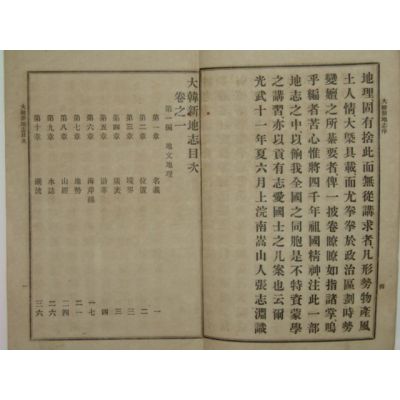 大韓新地志序
四
地理固有捨此而無從講求者凡形勢物產風
土人情大槩具載而尤拳拳於政治區劃時勢
變嬗之所綦要者俾一披卷瞭瞭如指諸掌嗚
乎編者苦心惟將四千年祖國精神注此一部
地志之中以餉我全國之同胞是不特資蒙學
之講習亦以貢有志愛國士之几案也云爾
光武十一年夏六月上浣南嵩山人張志淵識
大韓新地志目次
卷之一
第一編 地文地理
第一章 名義 一
第二章 位置 二
第三章 境界 三
第四章 廣袤 三
第五章 沿革 四
第六章 海岸線 一七
第七章 地勢 二一
第八章 山經 二四
第九章 水誌 二六
第十章 潮流 三六
大韓新地志目次
一